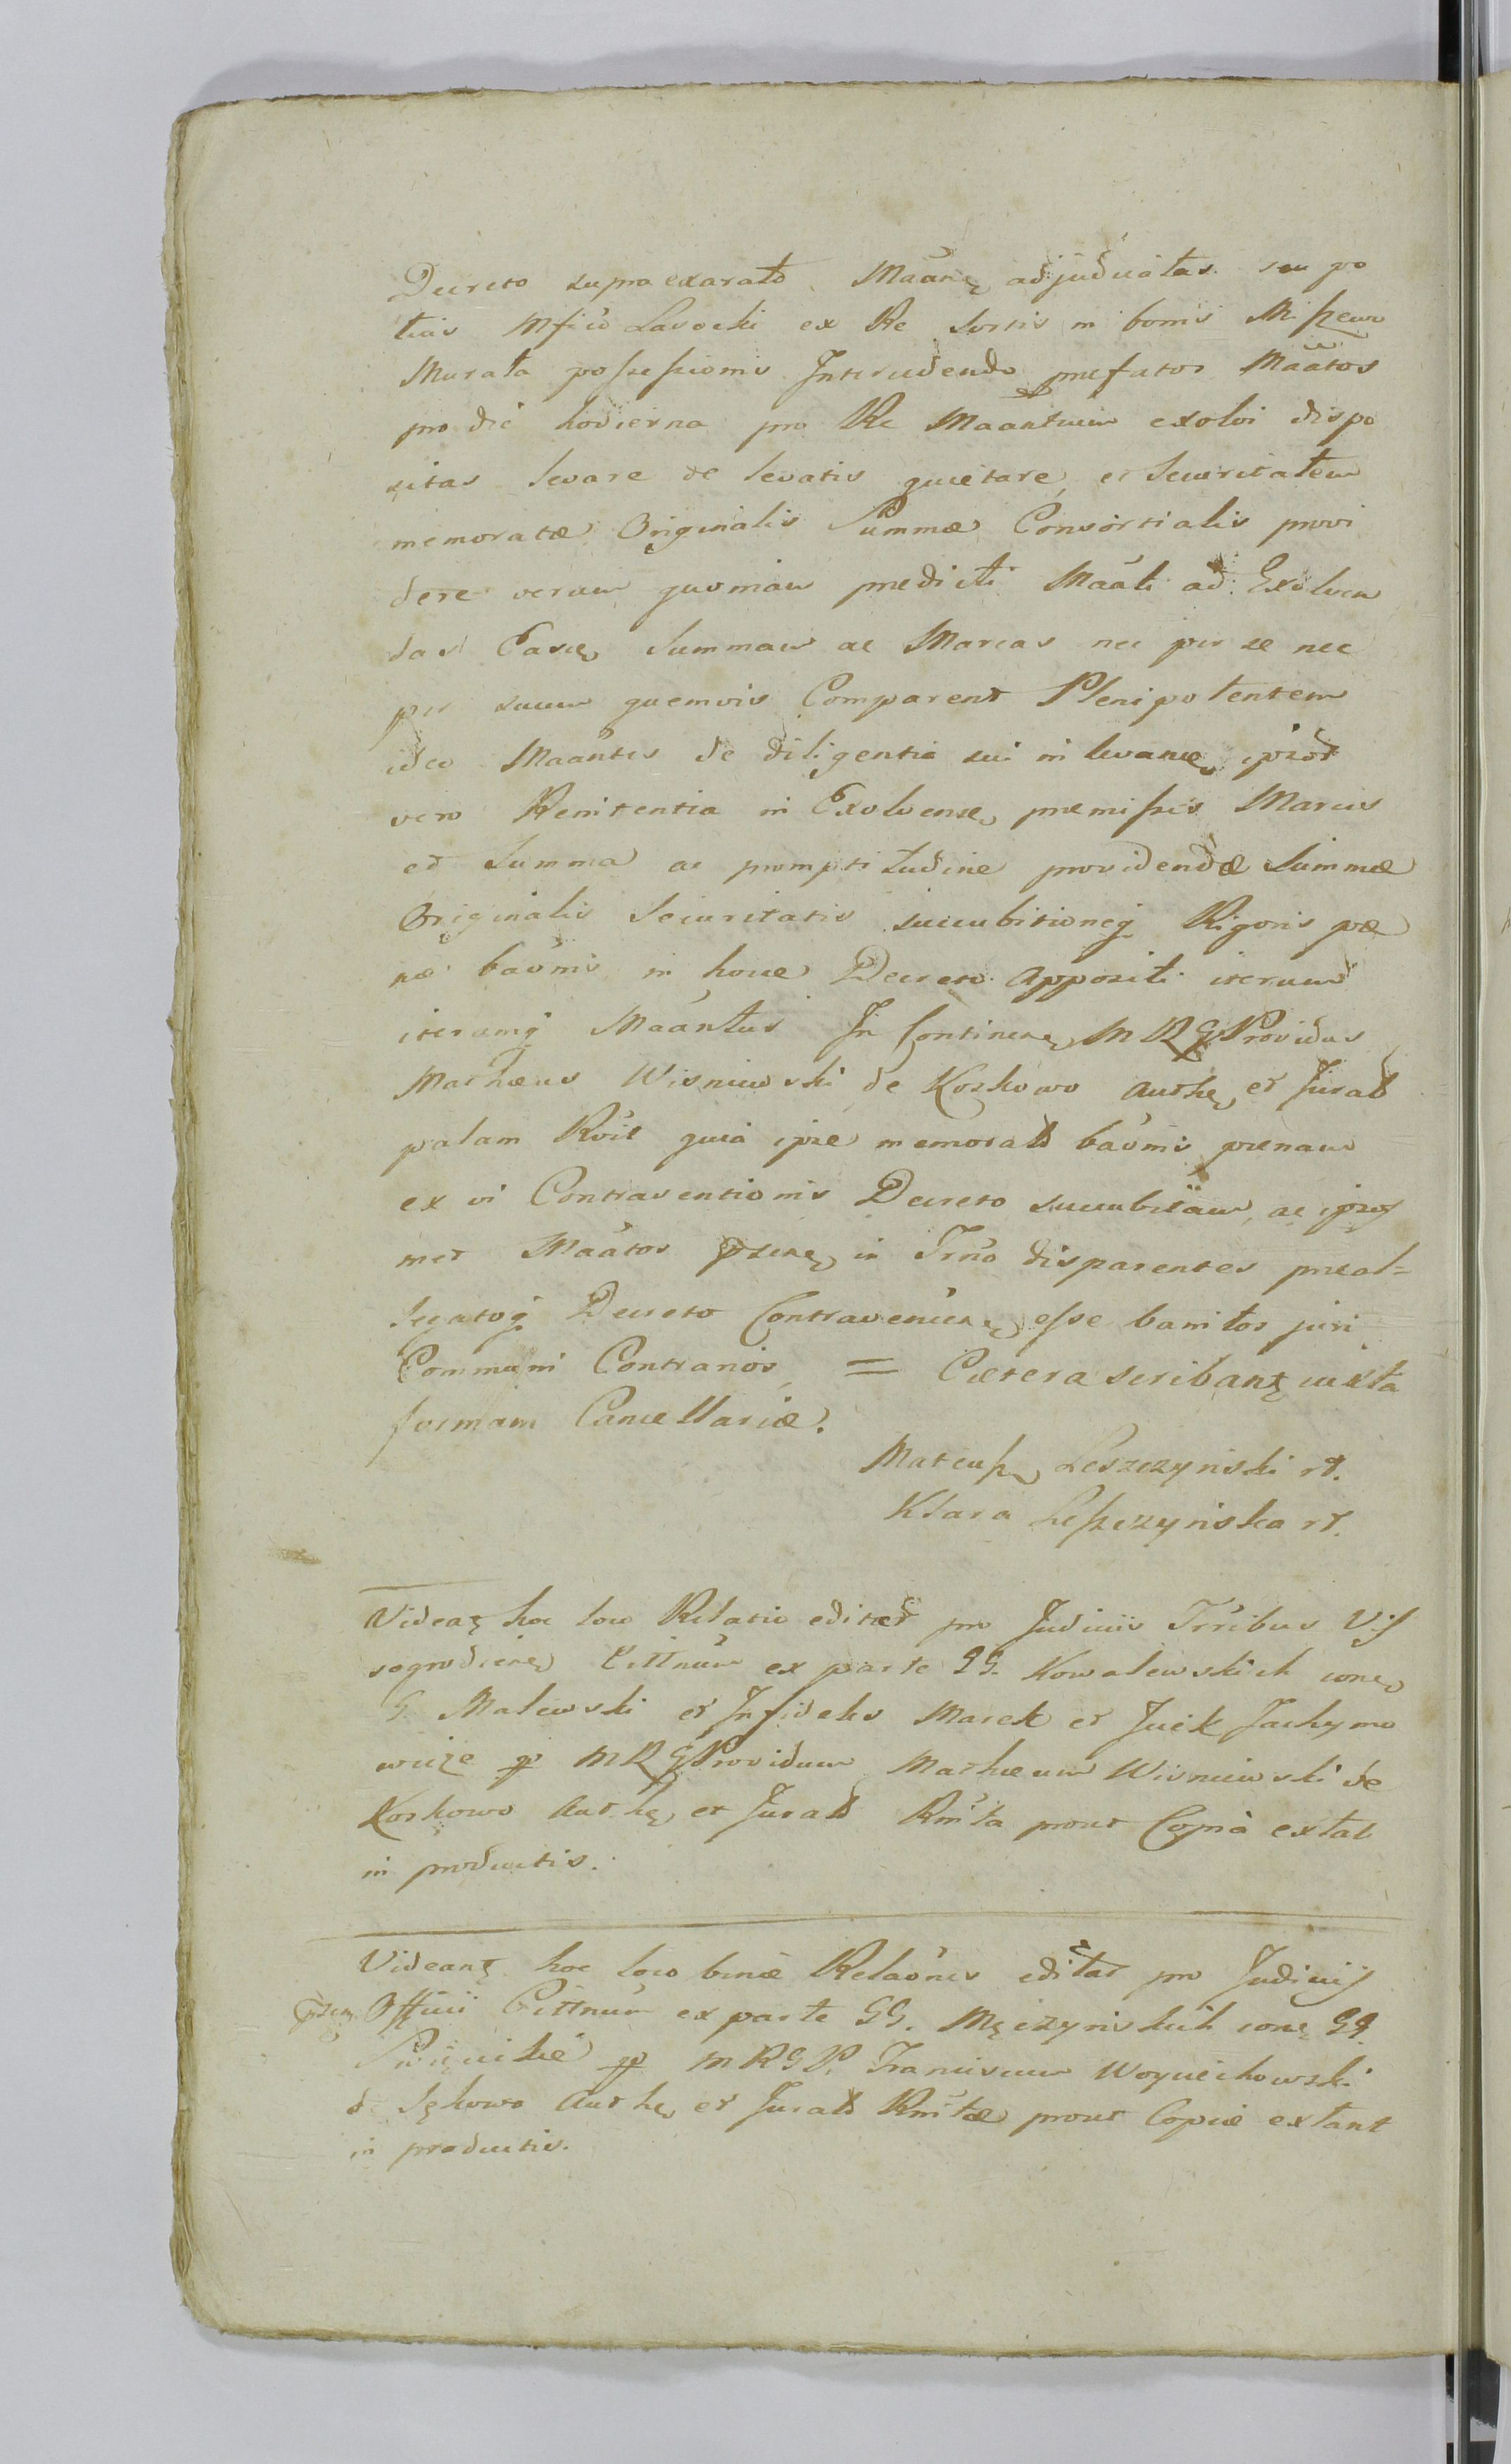 Decreto supra exarato Maane adjudicatas seu po
tius Mfico Lasocki ex Re Sortis in bonis Miszewo
Murata possessionis Intercedendo prefatos Maatos
pro die hodierna pro Re Maantium exolvi dispo
sitas levare de levatis quietare, et Securitatem
memoratæ Originalis Summæ Consortialis provi
dere verum quoniam prædicti Maati ad Exolven
das Easq, Summam ac Marcas nec per se nec
per suum quemvis Comparent Plenipotentem
ideo Maantes de diligentia sui in levane, ipsor
vero Renitentia in Exolvense, præmissis Marcis
et Summa ac promptitudine providendæ Summæ
Originalis Securitatis succubitioneq Rigoris pæ
næ baonis in hocce Decreto Appositi iterum
iterumq Maantus In Continen, MRG Providus
Mathæus Wisniewski de Koskowo Authe, et Jurat
palam Rvit quia ipse memorat baonis pænam
ex vi Contraventionis Decreto succubitam, ac ipsos
met Maatos psene, in Trno disparentes præal=
legatoq Decreto Contravenien, esse banitos juri
Communi Contrarios, = Cætera scribant iuxta
formam Cancellariæ.
Mateusz Leszczyński rt.
Klara Leszczyńska rt.
Videat hoc loco Relatio editar pro Judiciis Trribus Vis
sogrodiene, Cittnum ex parte GG. Kowalewskich cone,
G. Malewski et Infideles Marek et Jcek Jachymo
wicze p MRG Providum Mathæum Wisniewski de
Koskowo Authe, et Jurat Rnita prout Copia extat
in productis.
Videant hoc loco binæ Relaones editar pro Judicijs
psen, Officii Cittnum ex parte GG. Męczyńskich cone GG.
p MRGP. Franciscum Woyciechowski
de Sękowo Authe, et Jurat Rnitæ prout Copiæ extant
in productis.